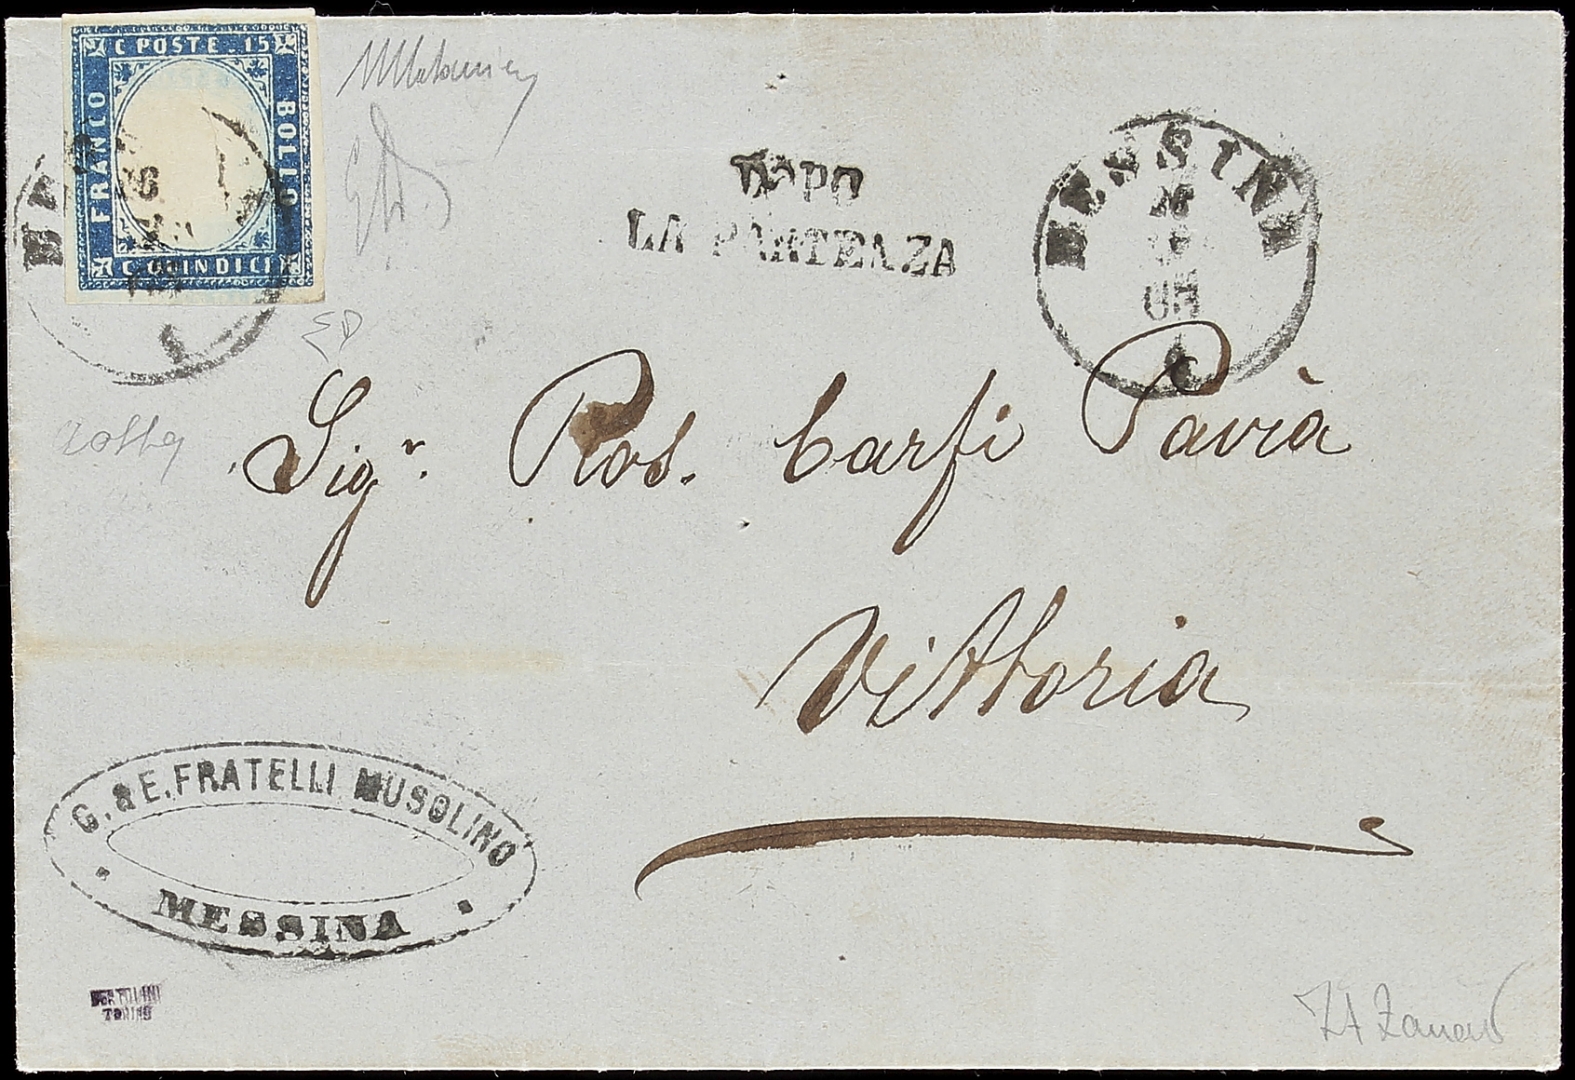 C POSTE. 15
FRANCO
BOLLO
C. QUINDICI
DOPO
LA PARTENZA
MESSINA
Sigr. Ros. Carfi Pavià
Vittoria
G. & E. FRATELLI MUSOLINO
MESSINA
TORINO